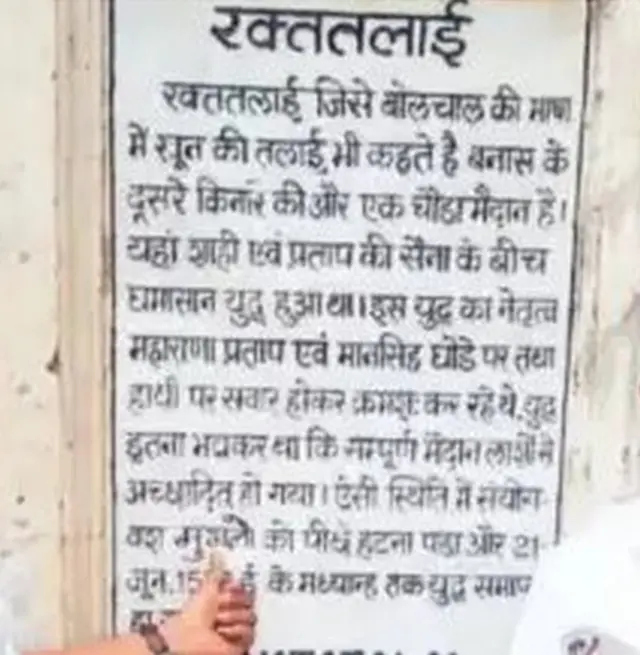 रक्ततलाई
रक्ततलाई जिसे बोलचाल की भाषा
में खून की तलाई भी कहते है बनास के
दूसरे किनारे की और एक चौडा मैदान है।
यहां शाही एवं प्रताप की सैना के बीच
घमासान युद्ध हुआ था। इस युद्ध का नेतृत्व
महाराणा प्रताप एवं मानसिह घोडे पर तथा
हाथी पर सवार होकर क्रमशः कर रहे थे, युद्ध
इतना भयंकर था कि सम्पूर्ण मैदान लाशों से
अच्छादित हो गया। ऐसी स्थिति में संयोग
वश मुगलो को पीछे हटना पडा और 21
जून, 15 ई के मध्यान्ह तक युद्ध समाप्त